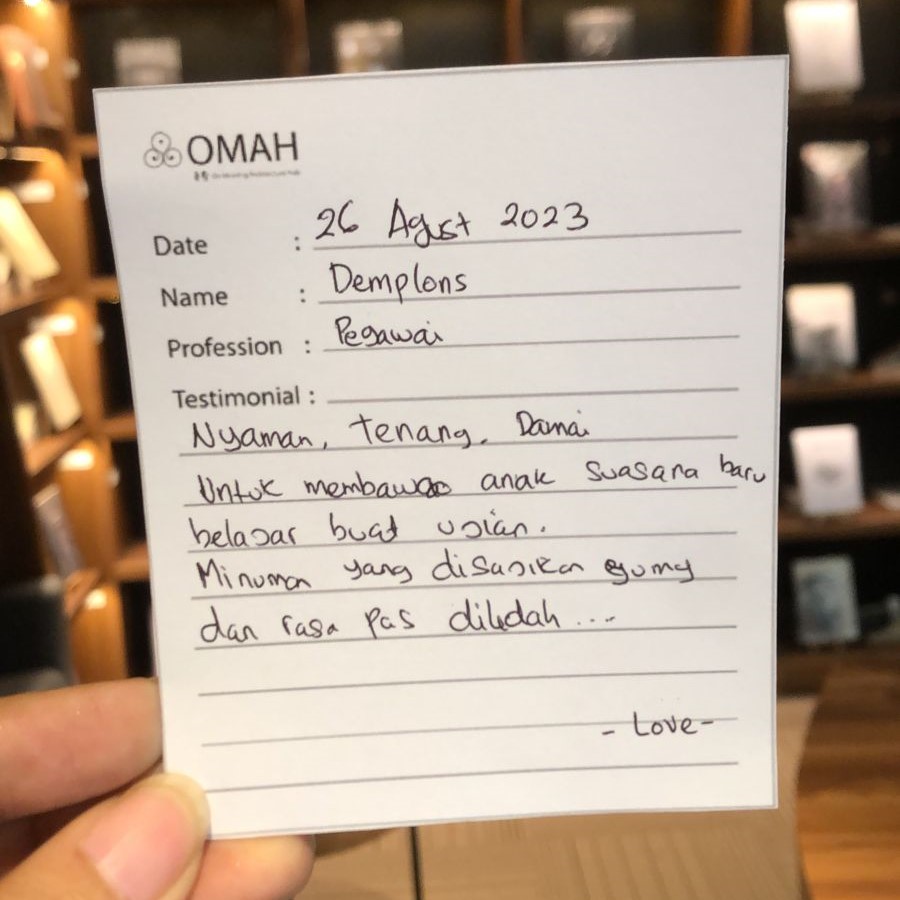 OMAH
Date : 26 Agust 2023
Name : Demplons
Profession : Pegawai
Testimonial :
Nyaman, tenang, Damai
Untuk membawa anak suasana baru
belajar buat ujian.
Minuman yang disajikan yumy
dan rasa pas dilidah ...
- Love -